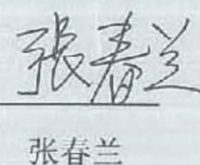 张春兰
张春兰